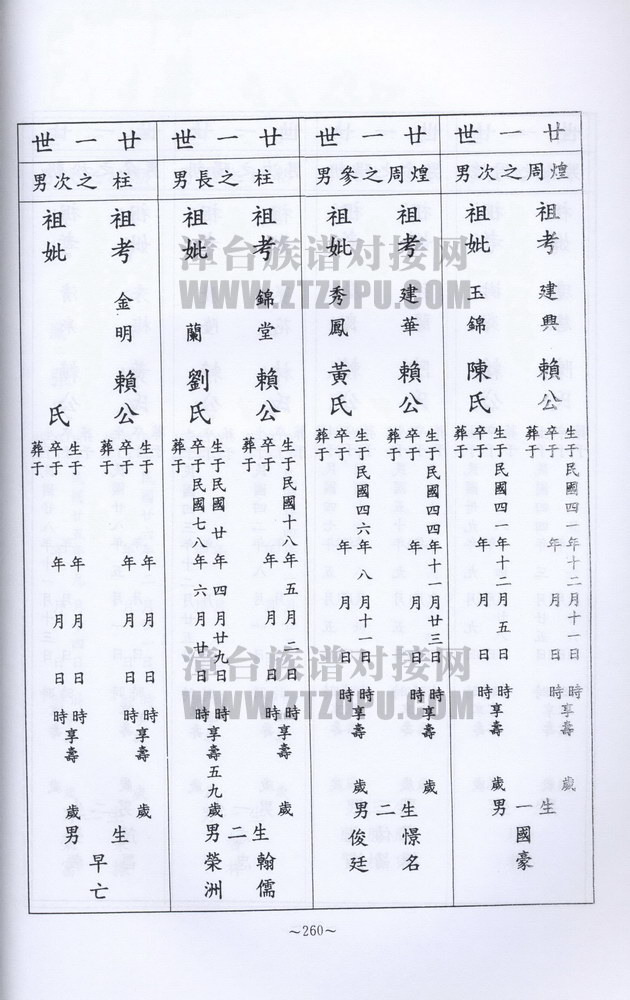 廿一世
煌周之次男
祖考 建興 賴公
生于民國四一年十二月十一日 時享壽 歲
卒于 年 月 日 時
葬于
祖妣 玉錦 陳氏
生于民國四一年十二月五日 時享壽 歲
卒于 年 月 日 時
葬于
生一男
國豪
廿一世
煌周之參男
祖考 建華 賴公
生于民國四四年十一月廿三日 時享壽 歲
卒于 年 月 日 時
葬于
祖妣 秀鳳 黃氏
生于民國四六年八月十一日 時享壽 歲
卒于 年 月 日 時
葬于
生二男
憬名
俊廷
廿一世
柱之長男
祖考 錦堂 賴公
生于民國十八年五月二日 時享壽 歲
卒于 年 月 日 時
葬于
祖妣 蘭 劉氏
生于民國廿年四月廿九日 時享壽五九歲
卒于民國七八年六月廿日 時
葬于
生二男
翰儒
榮洲
廿一世
柱之次男
祖考 金明 賴公
生于 年 月 日 時享壽 歲
卒于 年 月 日 時
葬于
祖妣 氏
生于 年 月 日 時享壽 歲
卒于 年 月 日 時
葬于
生 男
早亡
~260~
漳台族谱对接网
WWW.ZTZUPU.COM
漳台族谱对接网
WWW.ZTZUPU.COM